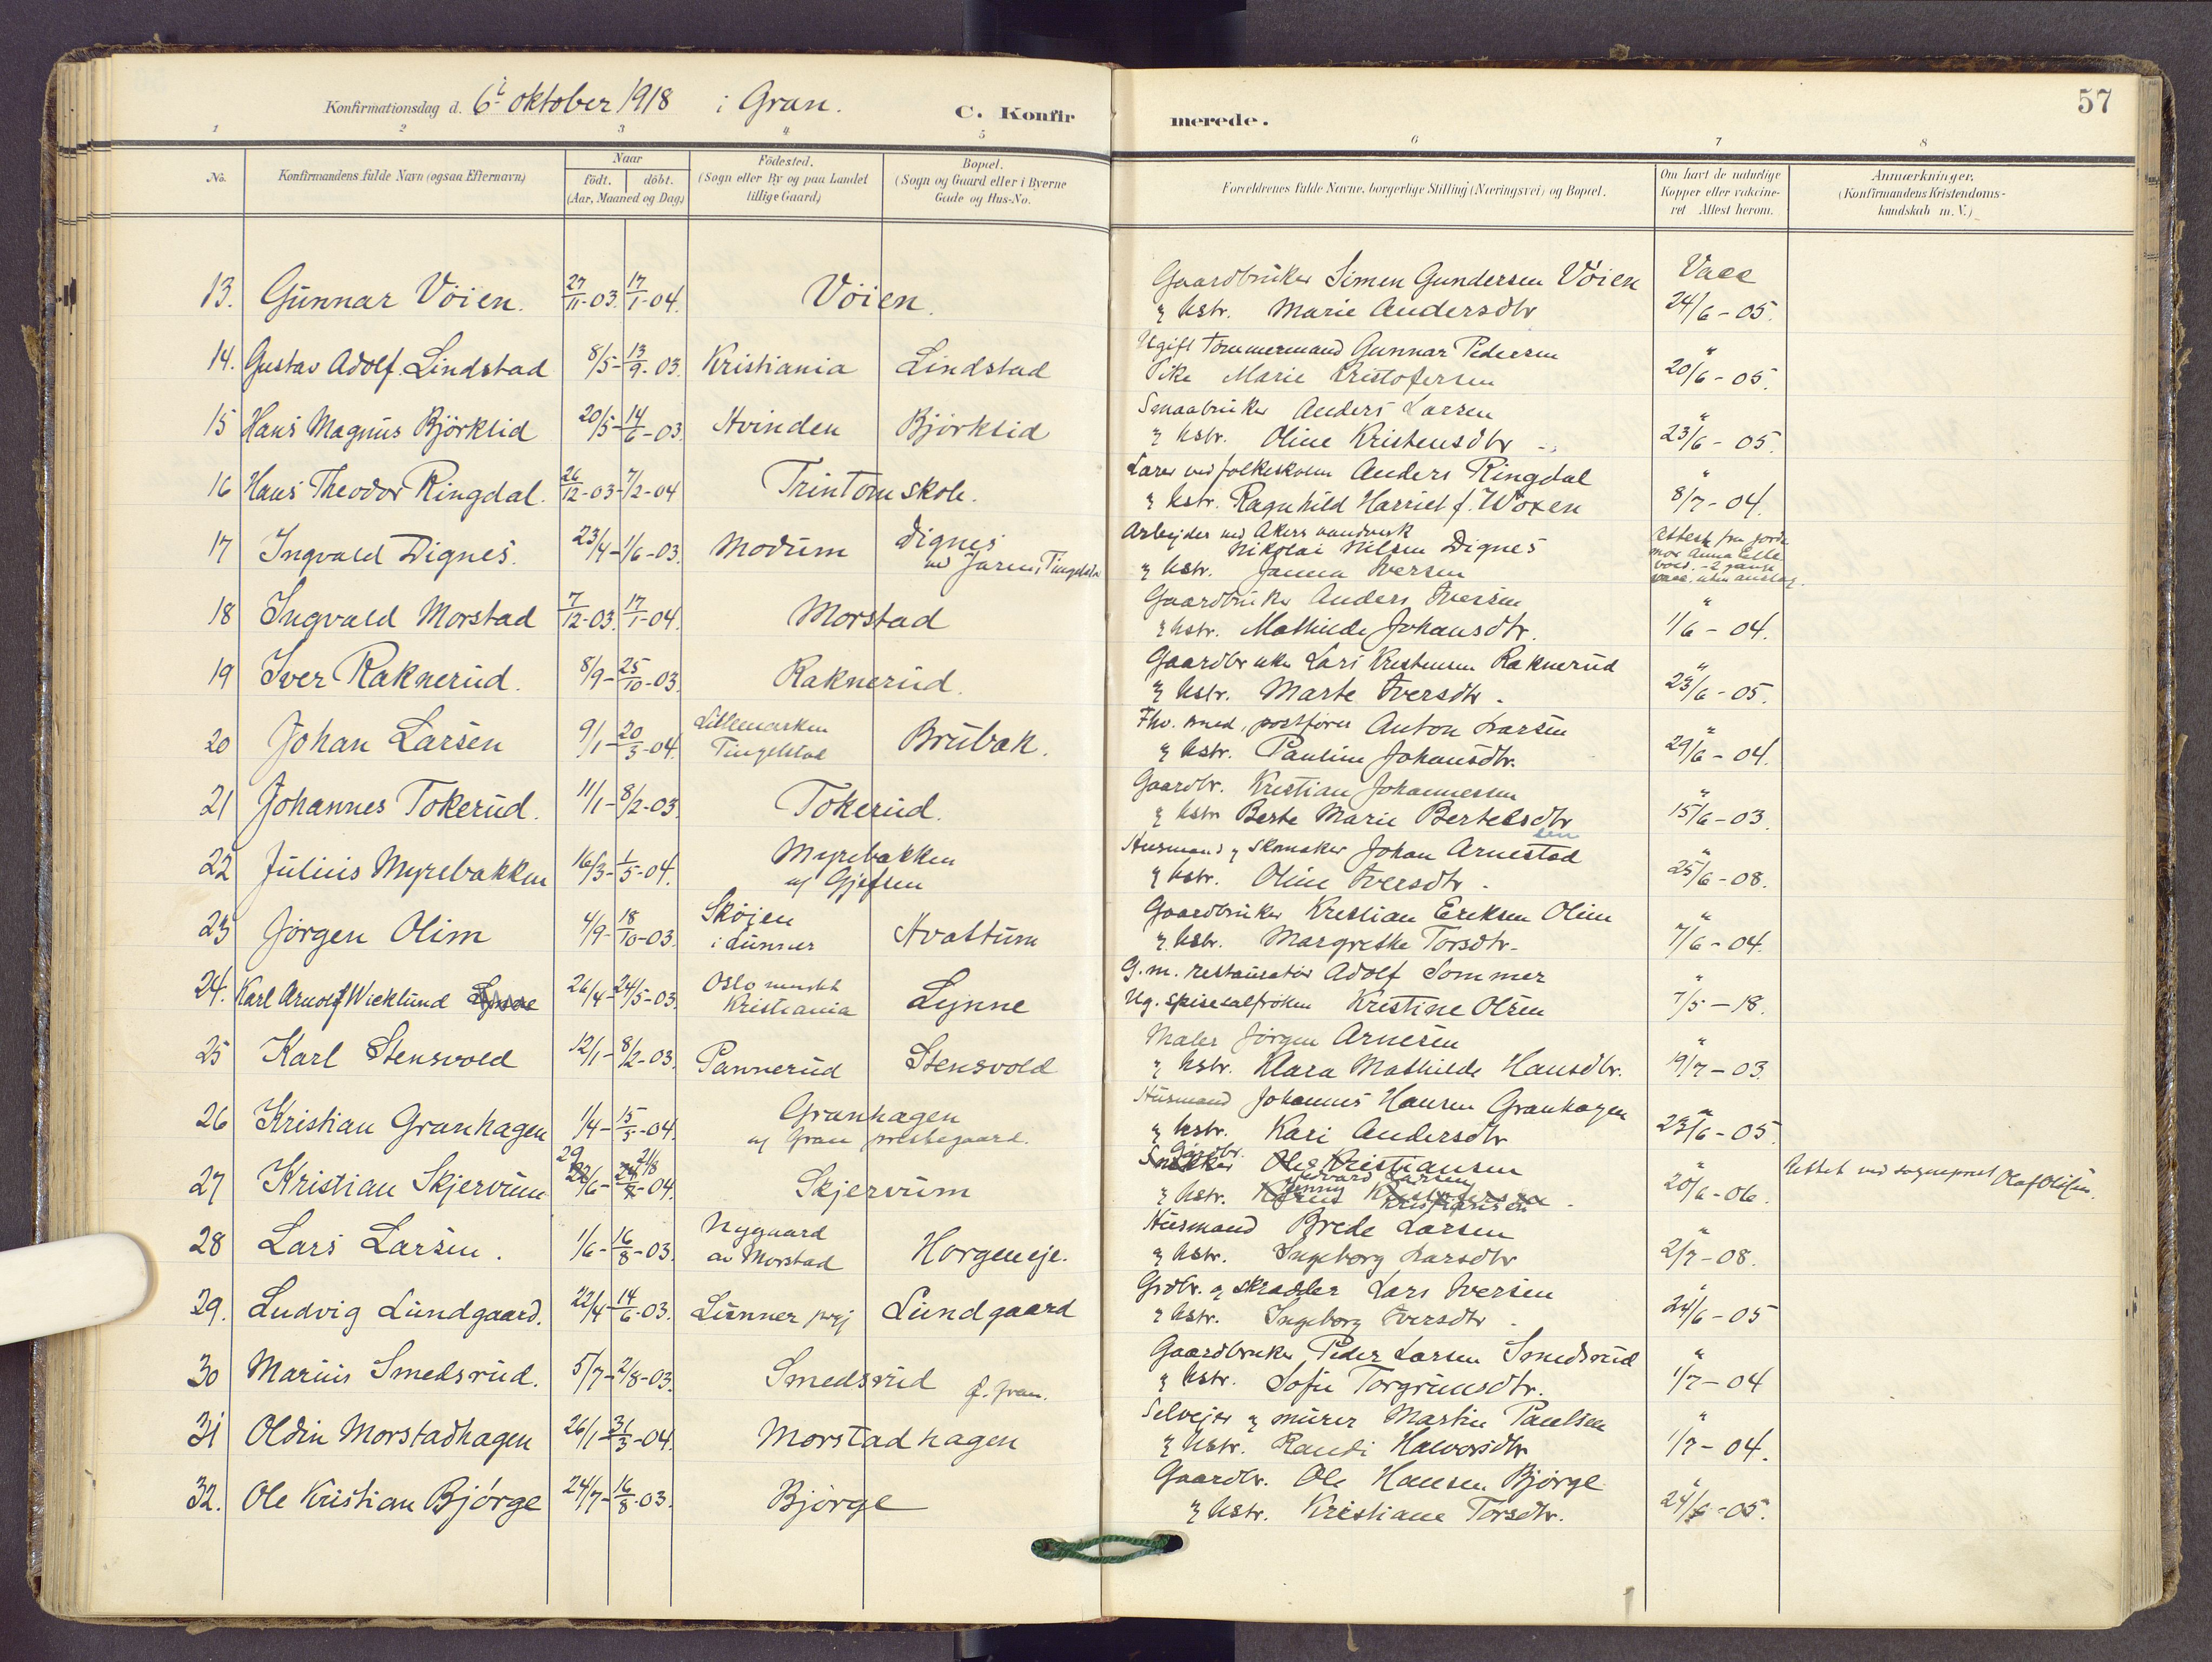 Konfirmationsdag d. 6t oktober 1918 i Gran.
C. Konfirmerede.
57
1 2 3 4 5 6 7 8
No.
Konfirmandens fulde Navn (ogsaa Efternavn)
Naar
födt. döbt.
(Aar, Maaned og Dag)
Födested.
(Sogn eller By og paa Landet
tillige Gaard)
Bopæl.
(Sogn og Gaard eller i Byerne
Gade og Hus-No.
Forældrenes fulde Navne, borgerlige Stilling (Næringsvei) og Bopæl.
Om havt de naturlige
Kopper eller vakcine-
ret Attest herom.
Anmærkninger.
(Konfirmandens Kristendoms-
kundskab m. V.)
13. Gunnar Vöien. 27/11-03. 17/1-04. Vöien. Gaardbruker Simen Gundersen Vöien Vacc
& hstr. Marie Andersdtr 24/6-05.
14. Gustav Adolf Lindstad 8/5-13/9-03. Kristiania Lindstad Ugift tömmermand Gunnar Pedersen "
Pike Marie Kristofersen 20/6-05.
15 Hans Magnus Björklid 20/5-14/6-03. Hvinden Björklid Smaabruker Anders Larsen "
& hstr. Oline Kristensdtr 23/6-05.
16 Hans Theodor Ringdal. 26/12-03-7/2-04 Trintom skole. Lærer ved folkeskolen Anders Ringdal "
& hstr. Ragnhild Harriet f. Woxen 8/7-04.
17 Ingvald Dignes. 23/4-1/6-03. Modum Dignes Arbeider ved Akers vandverk Attest fra jorde
ved Jaren, Tingelsta Nikolai Nilsen Dignes mor Anna
& hstr. Janna Iversen 2 gange
vacc. uten anslag.
18 Ingvald Morstad 7/12-03. 17/1-04. Morstad Gaardbruker Anders Iversen "
& hstr. Mathilde Johansdtr. 1/6-04.
19 Iver Raknerud. 8/9-25/10-03. Raknerud. Gaardbruker Lars Kristensen Raknerud "
& hstr. Marte Iversdtr. 23/6-05.
20 Johan Larsen 9/1-20/3-04. Lillemarken Brubak. Fhv. postförer Anton Larsen "
Tingelstad & hstr. Pauline Johansdtr. 29/6-04.
21 Johannes Tokerud. 11/1-8/2-03. Tokerud. Gaardbr. Kristian Johannessen "
& hstr Berte Marie Bertelsdtr 15/6-03.
22 Julius Myrebakken 16/3-1/5-04. Myrebakken Husmand & skomaker Johan Arnestad "
u/ Gjefsen & hstr. Oline Iversdtr. 25/6-08.
23 Jörgen Olim 4/9-18/10-03. Sköien Hvattum Gaardbruker Kristian Eriksen Olim "
i Lunner & hstr. Margrethe Torsdtr. 7/6-04.
24. Karl Arnolf Wicklund Lynne 26/4-24/5-03. Oslo Lynne G.m. restauratör Adolf Sommer "
Kristiania Ug. spisesalfröken Kristine Olsen 7/5-18.
25 Karl Stensvold 12/1-8/2-03. Pannerud Stensvold Maler Jörgen Arnesen "
& hstr. Klara Mathilde Hansdtr. 19/7-03.
26 Kristian Granhagen 1/4-15/5-04. Granhagen Husmand Johannes Hansen Granhagen "
u/ Gran prestegaard. & hstr. Kari Andersdtr 23/6-05.
27 Kristian Skjervum 29/6-21/8-04. Skjervum Snekker Ole Kristiansen "
Edvard Larsen
& hstr. Jenny Kristiansen. 20/6-06. Rettet ved sogneprest Olaf Olafsen.
28 Lars Larsen. 1/6-16/8-03. Nygaard Horgeneje. Husmand Brede Larsen "
av Morstad & hstr. Ingeborg Larsdtr 2/7-08.
29. Ludvig Lundgaard. 22/4-14/6-03. Lunner prgj Lundgaard Grdbr. & skrædder Lars Iversen "
& hstr. Ingeborg Iversdtr. 24/6-05
30 Marius Smedsrud. 5/7-2/8-03. Smedsrud f. Gran. Gaardbruker Peder Larsen Smedsrud "
& hstr. Sofie Torgrimsdtr. 1/7-04
31 Oldin Morstadhagen 26/1-31/3-04. Morstadhagen Selveier & murer Martin Paulsen "
& hstr. Randi Halvorsdtr 1/7-04.
32. Ole Kristian Björge 24/7-16/8-03. Björge Gaardbr. Ole Hansen Björge "
& hstr. Kristiane Torsdtr. 24/6-05.